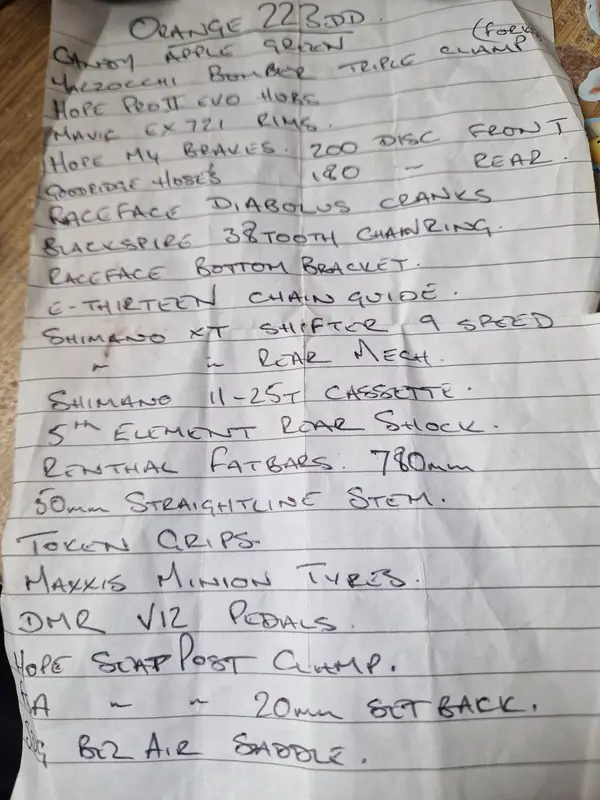 ORANGE 223.DD.
CANDY APPLE GREEN (FORK
MARZOCCHI BOMBER TRIPLE CLAMP
HOPE PRO II EVO HUBS
MAVIC EX 721 RIMS.
HOPE M4 BRAKES. 200 DISC FRONT
GOODRIDGE HOSES 180 " REAR.
RACEFACE DIABOLUS CRANKS
BLACKSPIRE 38 TOOTH CHAINRING.
RACEFACE BOTTOM BRACKET.
E-THIRTEEN CHAIN GUIDE.
SHIMANO XT SHIFTER 9 SPEED
" " REAR MECH.
SHIMANO 11-25T CASSETTE.
5TH ELEMENT REAR SHOCK.
RENTHAL FATBARS. 780mm
50mm STRAIGHTLINE STEM.
TOKEN GRIPS.
MAXXIS MINION TYRES.
DMR V12 PEDALS.
HOPE SEAT POST CLAMP.
" " 20mm SET BACK.
BEZ AIR SADDLE.